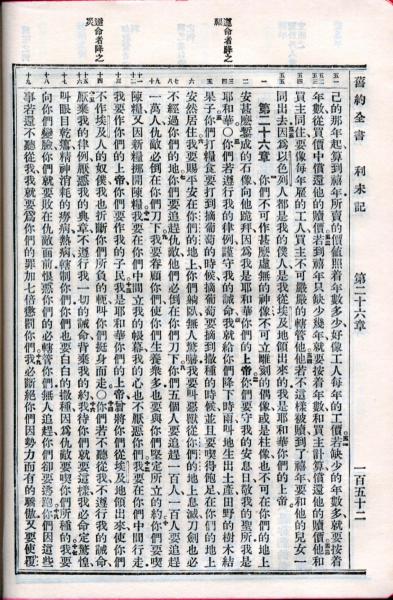 舊約全書 利未記 第二十六章 一百五十二
己的那年起算到禧年所賣的價值照着年數多少好像工人每年的工價若缺少的年數多就要按着
年數從買價中償還他的贖價若到禧年只缺少幾年就要按着年數和買主計算償還他的贖價他和
買主同住要像每年雇的工人買主不可嚴嚴的轄管他他若不這樣被贖到了禧年要和他的兒女一
同出去因爲以色列人都是我的僕人是我從埃及地領出來的我是耶和華你們的上帝
第二十六章 你們不可作甚麽虛無的神像不可立雕刻的偶像或是柱像也不可在你們的地上
安甚麽鏨成的石像向他跪拜因爲我是耶和華你們的上帝你們要守我的安息日敬我的聖所我是
遵命者降之
福
耶和華○你們若遵行我的律例謹守我的誡命我就給你們降下時雨叫地生出土產田野的樹木結
果子你們打糧食要打到摘葡萄的時候摘葡萄要摘到撒種的時候並且要喫得飽足在你們的地上
安然居住我要賜平安在你們的地上你們躺臥無人驚嚇我要叫惡獸從你們的地上息滅刀劍也必
不經過你們的地你們要追趕仇敵他們必倒在你們刀下你們五個人要追趕一百人一百人要追趕
一萬人仇敵必倒在你們刀下我要眷顧你們使你們生養衆多也要與你們堅定所立的約你們要喫
陳糧又因新糧挪開陳糧我要在你們中間立我的帳幕我的心也不厭惡你們我要在你們中間行走
我要作你們的上帝你們要作我的子民我是耶和華你們的上帝曾將你們從埃及地領出來使你們
違命者降之
災
不作埃及人的奴僕我也折斷你們所負的軛叫你們挺身而走○你們若不聽從我不遵行我的誡命
厭棄我的律例厭惡我的典章不遵行我一切的誡命背棄我的約我待你們就要這樣我必命定驚惶
叫眼目乾癟精神消耗的癆病熱病轄制你們你們也要白白的撒種因爲仇敵要喫你們所種的我要
向你們變臉你們就要敗在仇敵面前恨惡你們的必轄管你們無人追趕你們卻要逃跑你們因這些
事若還不聽從我我就要爲你們的罪加七倍懲罰你們我必斷絕你們因勢力而有的驕傲又要使覆